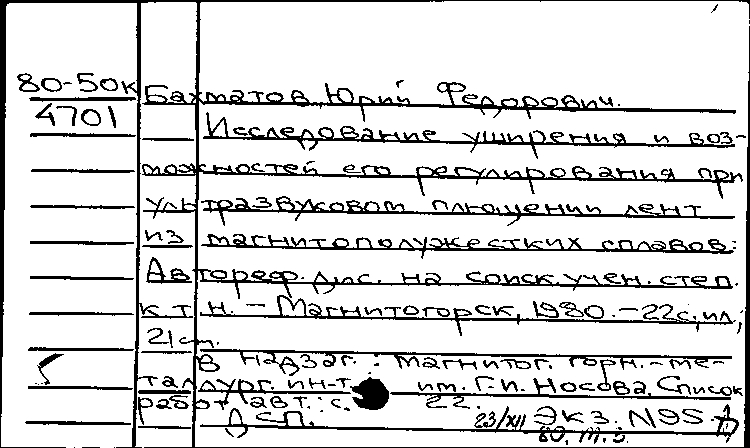 80-50к
4701
Бахматов Юрий Федорович.
Исследование уширения и воз-
можностей его регулирования при
ультразвуковом плющении лент
из магнитополужестких сплавов:
Автореф. дис. на соиск. учен. степ.
к.т.н. - Магнитогорск, 1980. - 22с., ил;
21см.
В надзаг.: Магнитог. горн.-ме-
таллург. ин-т им. Г.И. Носова. Список
работ авт.: с. 22.
ДСП. 23/XII Экз. №95
80.